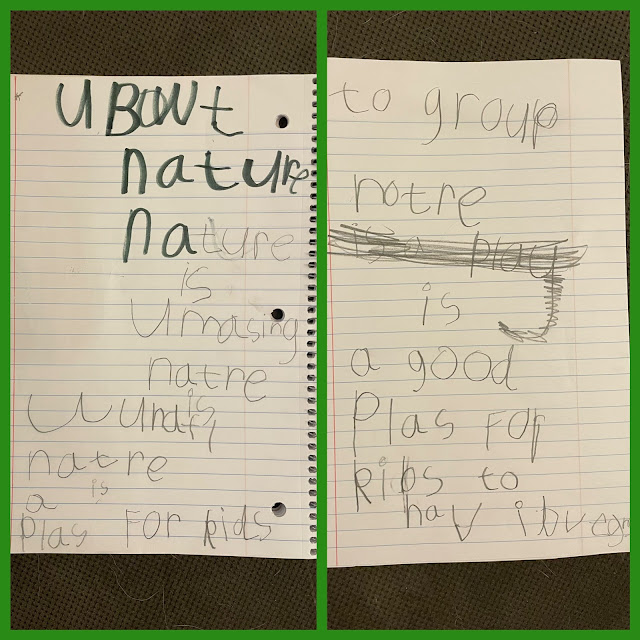 UBOWt
nature
nature
is
Umasing
natre
is
natre
is
a
Plas For kids
to group
notre
play
is
a good
Plas For
kibs to
hav